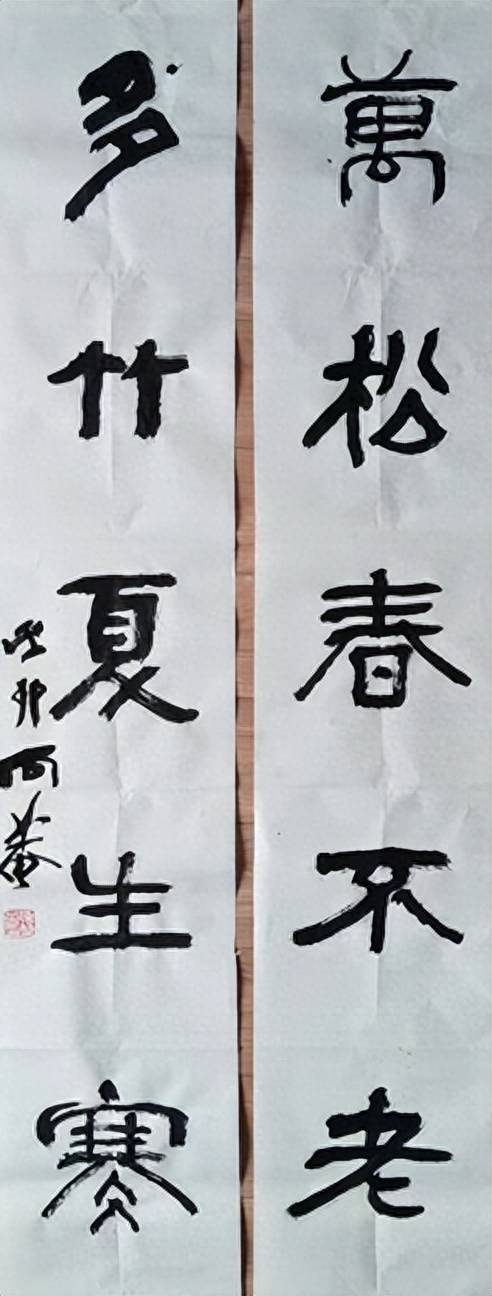 萬松春不老
多竹夏生寒